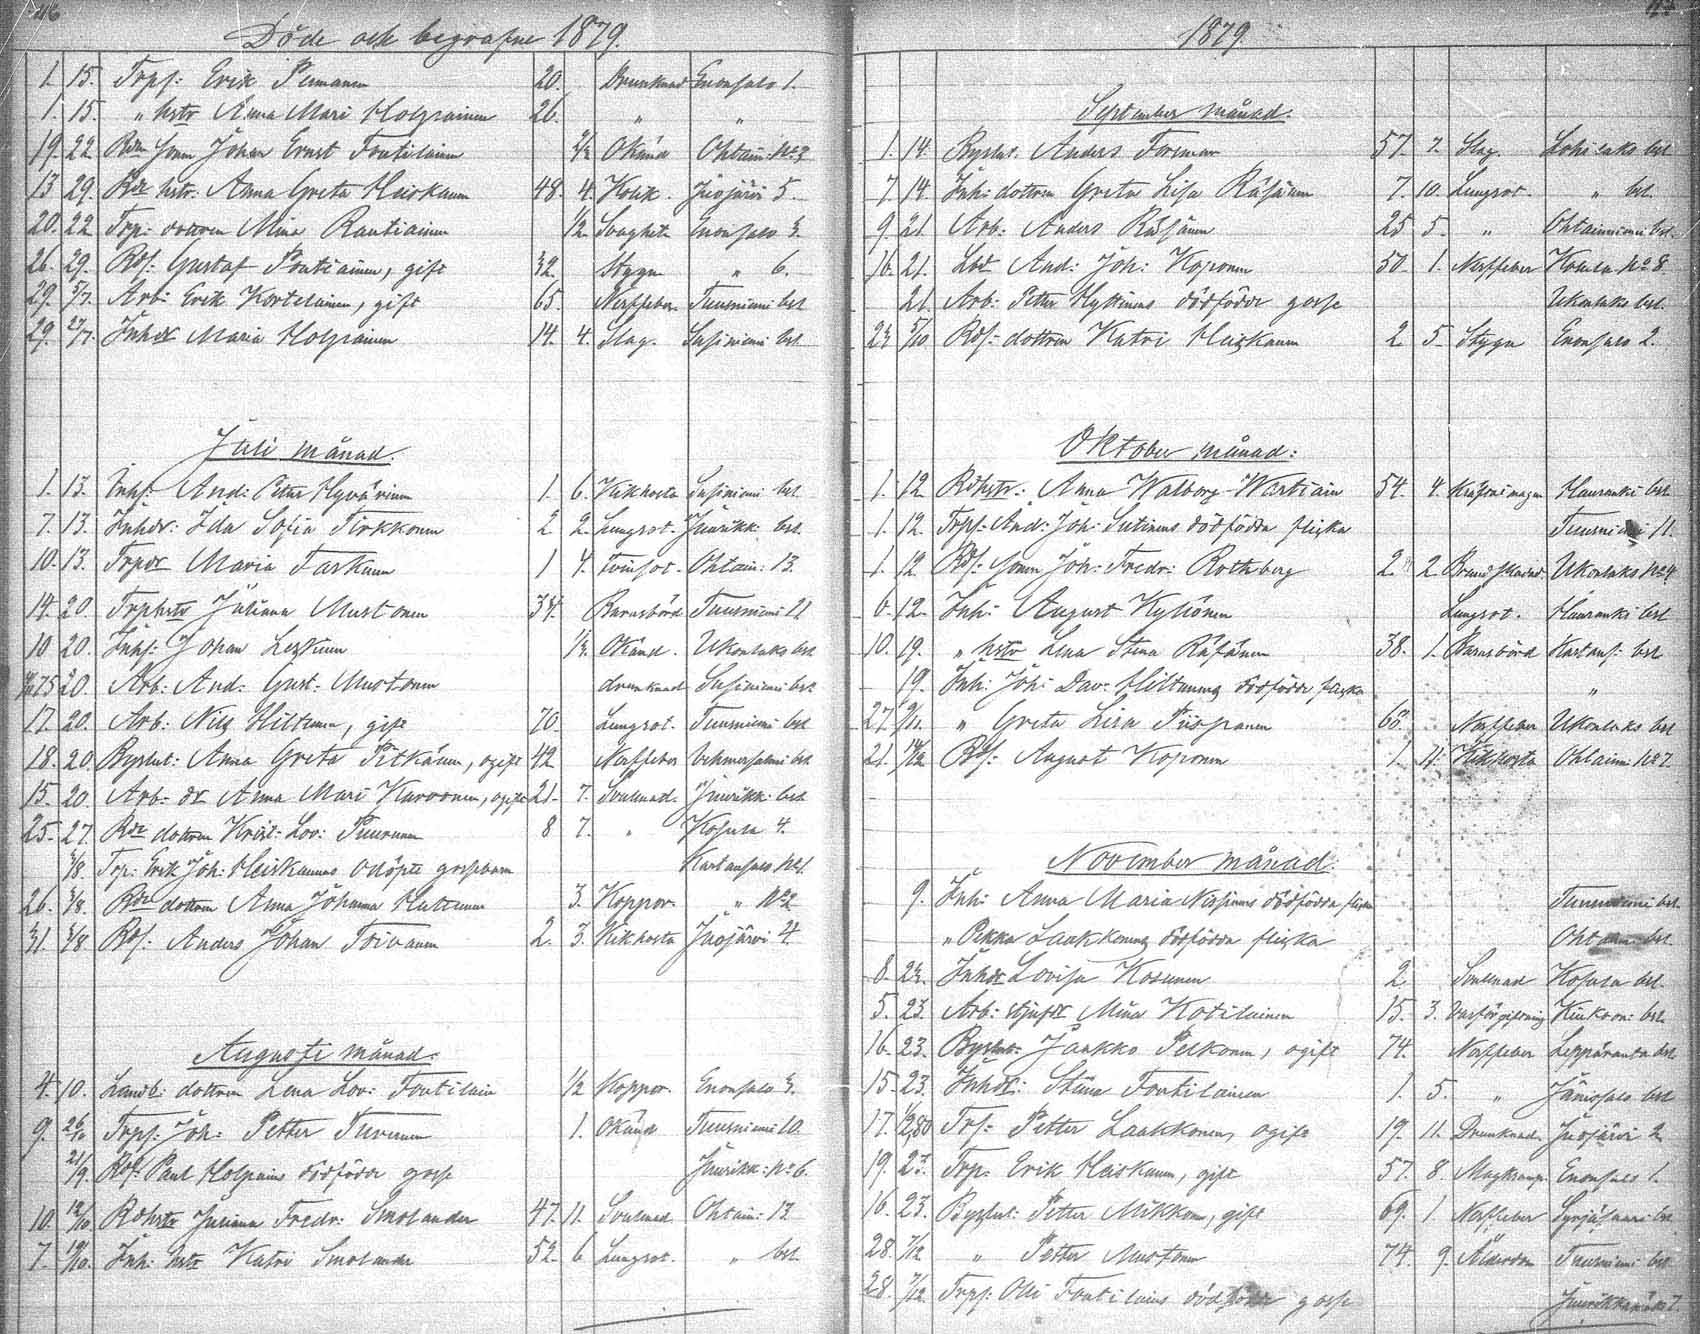 46
Döde och begrafne 1879.
1. 15. Trpf: Erik 20. Drunknad Enonsalo 1.
1. 15. " hstr Anna Mari Holpainen 26. " "
19. 22. Rdm sonen Johan Ernst Foutilainen Okänd Ohtain: No 3
13 29. Rdr hstr. Anna Greta Heiskanen 48. 4. Kolik. Juojärvi 5.
20. 22 Trp: dottren Mina Rautiainen 1/2 Svaghet Enonsalo 3.
26. 29. Rdf: Gustaf Foutiainen, gift 32. Stygn " 6.
29. 5/7. Arb: Erik Kortelainen, gift 65. Nerffeber Tuusniemi bst
29. 27/7. Inhdr Maria Holpainen 14. 4. Slag. Susiniemi bst
Juli månad.
1. 13. Inhs: And: Petter Hyvärinen 1. 6. Kikhosta Susiniemi bst
7. 13. Inhdr: Ida Sofia Tirkkonen 2 2. Lungsot. Juurikk: bst.
10. 13. Trpdr Maria Tarkuin 1 4. Tvinsot. Ohtain: 13.
14. 20. Trphstr Juliana Mustonen 34. Barnsbörd Tuusniemi 21
10 20. Inhs: Johan Leskinen Okänd. Ukonlaks bst
20. Arb: And: Gust: Mustonen drunknad Susiniemi bst.
17. 20. Arb: Nils Hiltunen, gift 70. Lungsot. Tuusniemi bst
18. 20. Byslut: Anna Greta Pitkänen, ogift 42 Nerffeber Vehmersalmi bst
15. 20. Arb: dr Anna Mari Karvonen, ogift 21. 7. Svulnad. Juurikk: bst
25. 27. Rdr dottren Krist: Lov: Puurunen 8 7. " Kosula 4.
3/8. Trp: Erik Joh: Heiskanens odöpte gossebarn Kartansalo No 1.
26. 3/8. Rdr dottren Anna Johanna Hutunen 3. Koppor. " No 2
31. 3/8. Rdf. Anders Johan Toivanen 2. 3. Kikhosta Juojärvi 4.
Augusti månad.
4. 10. Landb: dottren Lena Lov: Foutilain 1/2 Koppor. Enonsalo 3.
9. Trpf: Joh: Petter Turunen 1. Okänd Tuusniemi 10.
21/9. Rdf: Paul Holpains dödfödde gosse Juurikk: No 6.
10. 12/10. Rdhstr Juliana Fredr: Smolander 47. 11. Svulnad. Ohtain: 13.
7. 19/10. Inh: hstr Katri Smolander 52. 6 Lungsot. " bst.
1879.
September månad.
1. 14. Byslut. Anders Forsman 57. 7. Slag. Lohilaks bst
7. 14. Inh: dottren Greta Lisa Räsänen 7. 10. Lungsot. " bst.
9. 21. Arb: Anders Räsänen 25 5. " Ohtainniemi bst.
16. 21. Lbd And: Joh: Koponen 50. 1. Nerffeber Kosula No 8.
21. Arb: Petter Hyttinens dödfödde gosse Ukonlaks bst.
23 5/10 Rdf: dottren Katri Heiskanen 2 5. Stygn Enonsalo 2.
Oktober månad:
1. 12 Rdhstr: Anna Walborg Wartiain 54. 4. Kräfta i magen Hauranki bst
1. 12. Trpf: And: Joh: Sutinens dödfödda flicka Tuusniemi 11.
1. 12 Rdf: sonen Joh: Fredr: Rothberg 2. 2. Brännskadad Ukonlaks No 4
6. 12. Inh: August Kyllönen Lungsot. Hauranki bst
10. 19. " hstr Lena Stina Räsänen 38. 1. Barnsbörd Kartans: bst
19. Inh: Joh: Dav: Hiltunens dödfödde flicka "
27. 9/11. " Greta Lisa Piispanen 60. Nerffeber Ukonlaks bst
21. 14/12 Rdf: August Koponen 1. 11. Kikhosta Ohtain: No 7.
November månad.
9. Inh: Anna Maria Nissinens dödfödda flicka Tuusniemi bst.
" Pekka Laakkonens dödfödda flicka Ohtain: bst
8. 23. Inhdr Lovisa Kosunen 2. Svulnad Kosula bst.
5. 23. Arb: styfdr Mina Kotilainen 15. 3. bst.
16. 23. Byslut: Jaakko Pelkonen, ogift 74. Nerffeber Leppäranta bst
15. 23. Inhdr: Stina Foutilainen 1. 5. " Jänissalo bst
17. Trf: Petter Laakkonen, ogift 19. 11. Drunknad. Juojärvi 2.
19. 23. Trp: Erik Heiskanen, gift 57. 8. Magkramp. Enonsalo 1.
16. 23. Byslut: Petter Mikkonen, gift 69. 1 Nerffeber Syrjäsaari bst
28. 7/12 " Petter Mustonen 74. 9. Ålderdom Tuusniemi bst
28. 7/12. Trpf: Olli Foutilains dödfödde gosse Juurikkamäki 7.